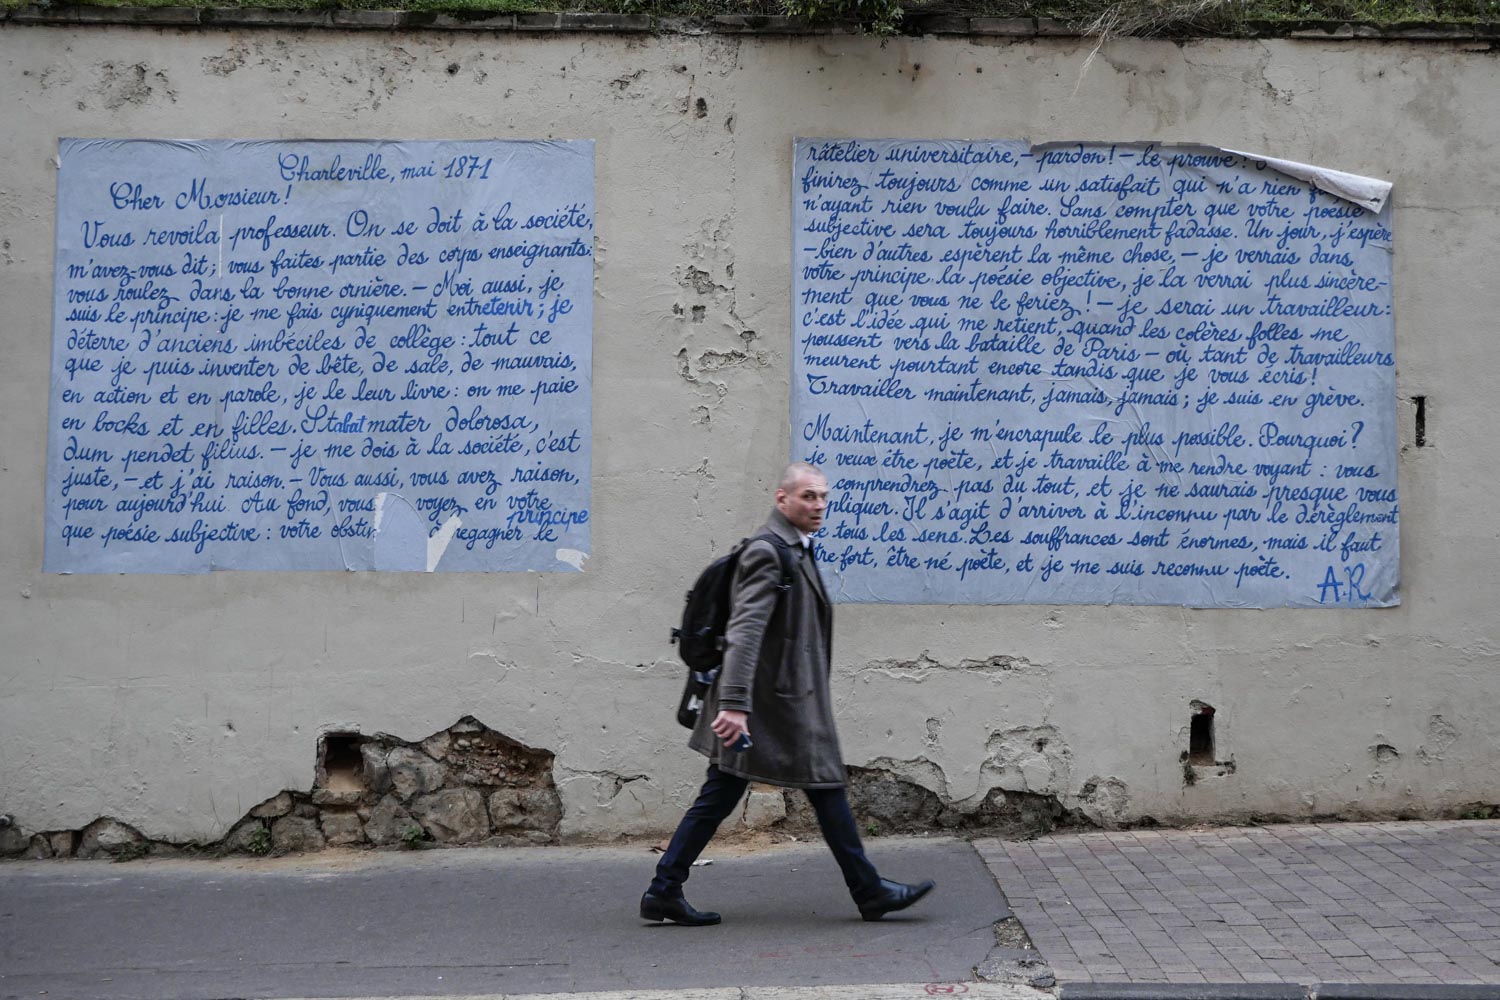 Charleville, mai 1871
Cher Monsieur!
Vous revoila professeur. On se doit à la société,
m'avez-vous dit; vous faites partie des corps enseignants:
vous roulez dans la bonne ornière. – Moi aussi, je
suis le principe: je me fais cyniquement entretenir; je
déterre d'anciens imbéciles de collège: tout ce
que je puis inventer de bête, de sale, de mauvais,
en action et en parole, je le leur livre: on me paie
en bocks et en filles. Stabat mater dolorosa,
dum pendet filius. – je me dois à la société, c'est
juste, – et j'ai raison. – Vous aussi, vous avez raison,
pour aujourd'hui. Au fond, vous voyez en votre
principe
que poésie subjective: votre obstin à regagner le
râtelier universitaire, – pardon! – le prouve:
finirez toujours comme un satisfait qui n'a rien
n'ayant rien voulu faire. Sans compter que votre poésie
subjective sera toujours horriblement fadasse. Un jour, j'espère
– bien d'autres espèrent la même chose, – je verrais dans
votre principe la poésie objective, je la verrai plus sincère-
ment que vous ne le feriez! – je serai un travailleur:
c'est l'idée qui me retient, quand les colères folles me
poussent vers la bataille de Paris – où tant de travailleurs
meurent pourtant encore tandis que je vous écris!
Travailler maintenant, jamais, jamais; je suis en grève.
Maintenant, je m'encrapule le plus possible. Pourquoi?
je veux être poète, et je travaille à me rendre voyant: vous
comprendrez pas du tout, et je ne saurais presque vous
pliquer. Il s'agit d'arriver à l'inconnu par le dérèglement
de tous les sens. Les souffrances sont énormes, mais il faut
tre fort, être né poète, et je me suis reconnu poète.
A.R